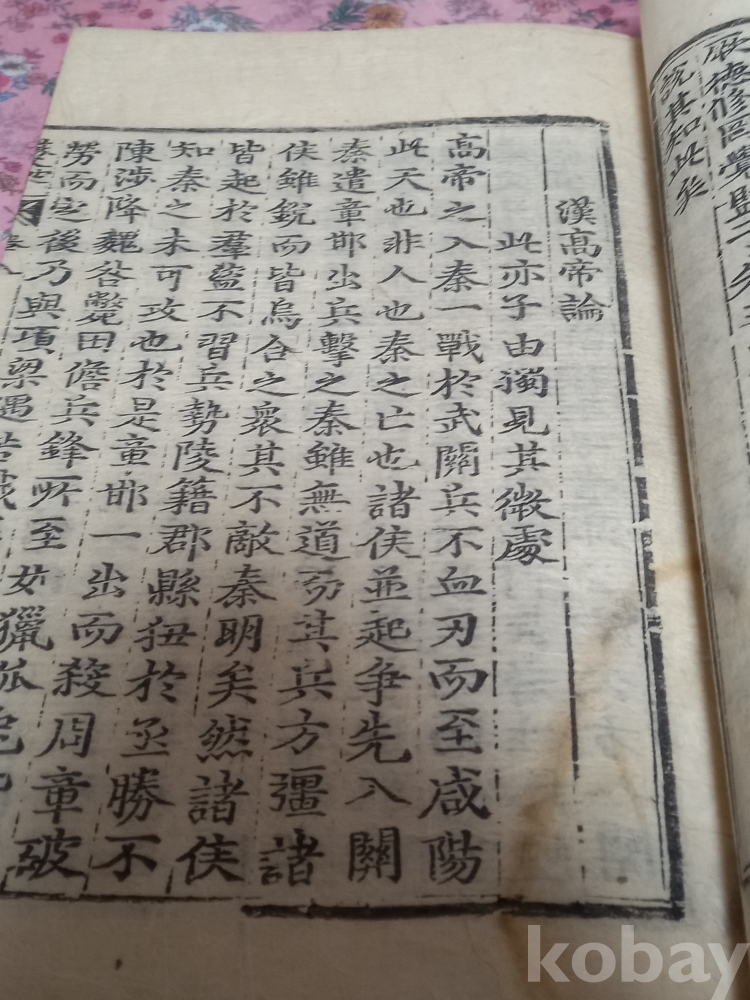 說其知此矣
漢高帝論
此亦子由獨見其微處
高帝之入秦一戰於武關兵不血刃而至咸陽
此天也非人也秦之亡也諸侯並起爭先入關
秦遣章邯出兵擊之秦雖無道而其兵方彊諸
侯雖銳而皆烏合之衆其不敵秦明矣然諸侯
皆起於羣盜不習兵勢陵籍郡縣狃於亟勝不
知秦之未可攻也於是章邯一出而殺周章破
陳涉降魏咎斃田儋兵鋒所至如獵狐
勞而定後乃與項梁遇
kobay